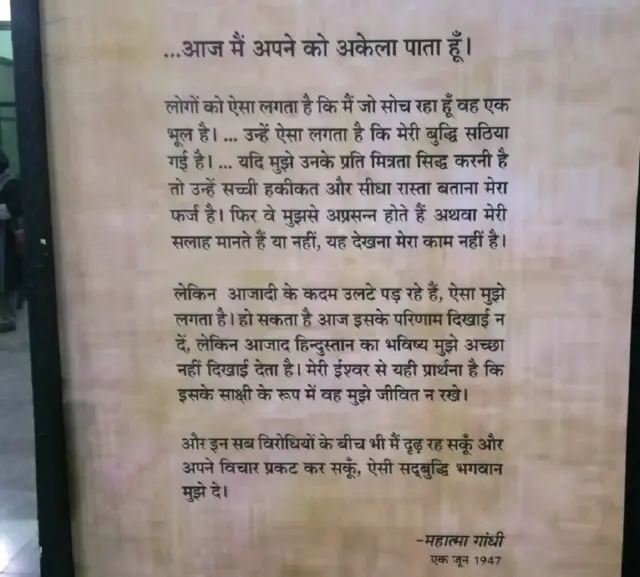 ...आज मैं अपने को अकेला पाता हूँ।
लोगों को ऐसा लगता है कि मैं जो सोच रहा हूँ वह एक
भूल है। ... उन्हें ऐसा लगता है कि मेरी बुद्धि सठिया
गई है। ... यदि मुझे उनके प्रति मित्रता सिद्ध करनी है
तो उन्हें सच्ची हकीकत और सीधा रास्ता बताना मेरा
फर्ज है। फिर वे मुझसे अप्रसन्न होते हैं अथवा मेरी
सलाह मानते हैं या नहीं, यह देखना मेरा काम नहीं है।
लेकिन आजादी के कदम उलटे पड़ रहे हैं, ऐसा मुझे
लगता है। हो सकता है आज इसके परिणाम दिखाई न
दें, लेकिन आजाद हिन्दुस्तान का भविष्य मुझे अच्छा
नहीं दिखाई देता है। मेरी ईश्वर से यही प्रार्थना है कि
इसके साक्षी के रूप में वह मुझे जीवित न रखे।
और इन सब विरोधियों के बीच भी मैं दृढ़ रह सकूँ और
अपने विचार प्रकट कर सकूँ, ऐसी सद्‌बुद्धि भगवान
मुझे दे।
-महात्मा गांधी
एक जून 1947